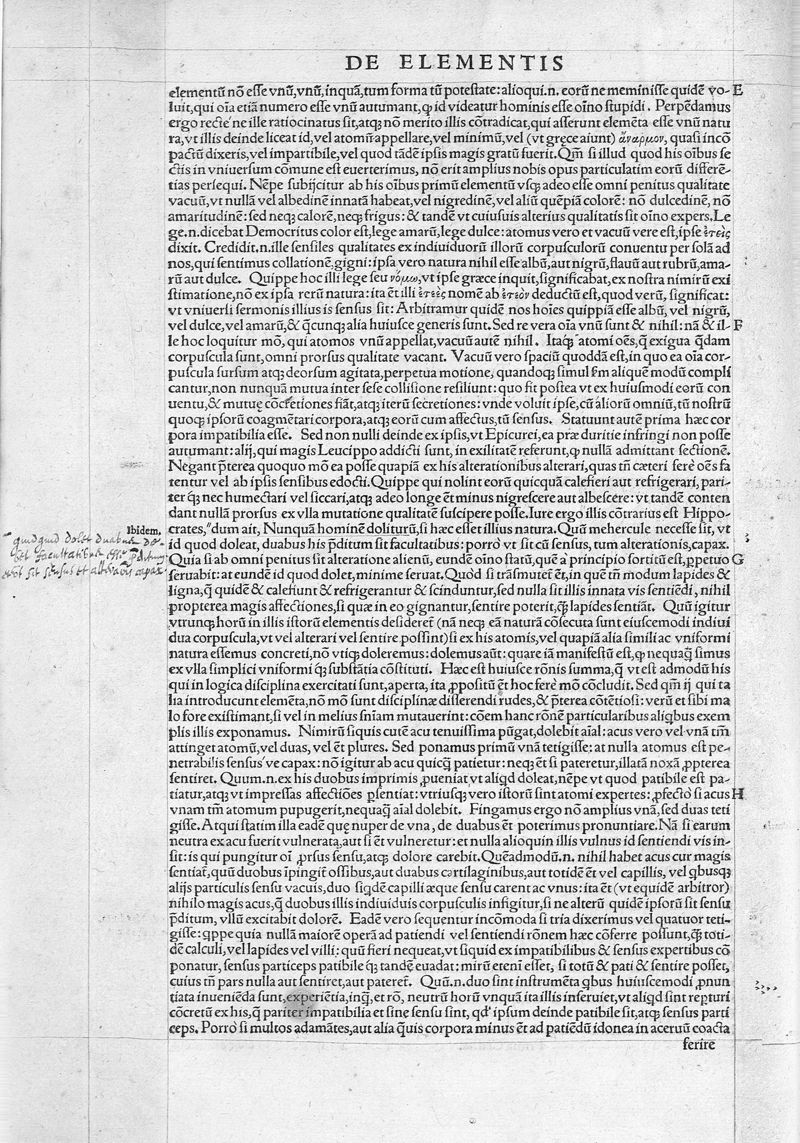 DE ELEMENTIS
elementũ nõ esse vnũ, vnũ, inquã, tum forma tũ potestate: alioqui.n. eorũ ne meminisse quidẽ vo- E
luit, qui oĩa etiã numero esse vnũ autumant, ꝙ id videatur hominis esse oĩno stupidi. Perpẽdamus
ergo recte ne ille ratiocinatus sit, atqꝫ nõ merito illis cõtradicat, qui asserunt elemẽta esse vnũ natu
ra, vt illis deinde liceat id, vel atomũ appellare, vel minimũ, vel (vt gręce aiunt) ἄναρμον, quasi incõ
pactũ dixeris, vel impartibile, vel quod tãdẽ ipsis magis gratũ fuerit. Qm̃ si illud quod his oĩbus se
ctis in vniuersum cõmune est euerterimus, nõ erit amplius nobis opus particulatim eorũ differẽ-
tias persequi. Nẽpe subijcitur ab his oĩbus primũ elementũ vsqꝫ adeo esse omni penitus qualitate
vacuũ, vt nullã vel albedinẽ innatã habeat, vel nigredinẽ, vel aliũ quẽpiã colorẽ: nõ dulcedinẽ, nõ
amaritudinẽ: sed neqꝫ calorẽ, neqꝫ frigus: & tandẽ vt cuiusuis alterius qualitatis sit oĩno expers. Le
ge.n. dicebat Democritus color est, lege amarũ, lege dulce: atomus vero et vacuũ vere est, ipse ἐτεῆς
dixit. Credidit.n. ille sensiles qualitates ex indiuiduorũ illorũ corpusculorũ conuentu per solã ad
nos, qui sentimus collationẽ, gigni: ipsa vero natura nihil esse albũ, aut nigrũ, flauũ aut rubrũ, ama-
rũ aut dulce. Quippe hoc illi lege seu νόμω, vt ipse græce inquit, significabat, ex nostra nimirũ exi
stimatione, nõ ex ipsa rerũ natura: ita ẽt illi ἐτεῆς nomẽ ab ἐτεὸν deductũ est, quod verũ, significat:
vt vniuersi sermonis illius is sensus sit: Arbitramur quidẽ nos hoĩes quippiã esse albũ, vel nigrũ,
vel dulce, vel amarũ, & q̃cunqꝫ alia huiusce generis sunt. Sed re vera oĩa vnũ sunt & nihil: nã & il- F
le hoc loquitur mõ, qui atomos vnũ appellat, vacuũ autẽ nihil. Itaqꝫ atomi oẽs, q̃ exigua q̃dam
corpuscula sunt, omni prorsus qualitate vacant. Vacuũ vero spaciũ quoddã est, in quo ea oĩa cor-
puscula sursum atqꝫ deorsum agitata, perpetua motione, quandoqꝫ simul fm aliquẽ modũ compli
cantur, non nunquã mutua inter sese collisione resiliunt: quo fit postea vt ex huiusmodi eorũ con
uentu, & mutuę cõcretiones fiãt, atqꝫ iterũ secretiones: vnde voluit ipse, cũ aliorũ omniũ, tũ nostrũ
quoqꝫ ipsorũ coagmẽtari corpora, atqꝫ eorũ cum affectus, tũ sensus. Statuunt autẽ prima hæc cor
pora impatibilia esse. Sed non nulli deinde ex ipsis, vt Epicurei, ea præ duritie infringi non posse
autumant: alij, qui magis Leucippo addicti sunt, in exilitatẽ referunt, ꝙ nullã admittant sectionẽ.
Negant p̃terea quoquo mõ ea posse quapiã ex his alterationibus alterari, quas tñ cæteri fere oẽs fa
tentur vel ab ipsis sensibus edocti. Quippe qui nolint eorũ quicquã calefieri aut refrigerari, pari-
ter qꝫ nec humectari vel siccari, atqꝫ adeo longe ẽt minus nigrescere aut albescere: vt tandẽ conten
dant nullã prorsus ex vlla mutatione qualitatẽ suscipere posse. Iure ergo illis cõtrarius est Hippo-
Ibidem.
crates, dum ait, Nunquã hominẽ dolituru, si hæc esset illius natura. Quũ mehercule necesse sit, vt
id quod doleat, duabus his p̃ditum sit facultatibus: porro vt sit cũ sensus, tum alterationis, capax.
Quia si ab omni penitus sit alteratione alienũ, eundẽ oĩno statũ, quẽ a principio sortitũ est, ꝑpetuo G
seruabit: at eundẽ id quod dolet, minime seruat. Quod si trãsmutet̃ ẽt, in quẽ tñ modum lapides &
ligna, q̃ quidẽ & calefiunt & refrigerantur & scinduntur, sed nulla sit illis innata vis sentiẽdi, nihil
propterea magis affectiones, si quæ in eo gignantur, sentire poterit, q̃ lapides sentiãt. Quũ igitur
vtrunqꝫ horũ in illis istorũ elementis desideret̃ (nã neqꝫ eã naturã cõsecuta sunt eiuscemodi indiui
dua corpuscula, vt vel alterari vel sentire possint) si ex his atomis, vel quapiã alia simili ac vniformi
natura essemus concreti, nõ vtiqꝫ doleremus: dolemus aũt: quare iã manifestũ est, ꝙ nequaq̃ simus
ex vlla simplici vniformi qꝫ substãtia cõstituti. Hæc est huiusce rõnis summa, q̃ vt est admodũ his
qui in logica disciplina exercitati sunt, aperta, ita ꝓpositũ ẽt hoc fere mõ cõcludit. Sed qm̃ ij qui ta
lia introducunt elemẽta, nõ mõ sunt disciplinæ differendi rudes, & p̃terea cõtẽtiosi: verũ et sibi ma
lo fore existimant, si vel in melius sñiam mutauerint: cõem hanc rõnẽ particularibus aliqbus exem
plis illis exponamus. Nimirũ siquis cutẽ acu tenuissima pũgat, dolebit aĩal: acus vero vel vnã tñ
attinget atomũ, vel duas, vel ẽt plures. Sed ponamus primũ vnã tetigisse: at nulla atomus est pe-
netrabilis sensus ve capax: nõ igitur ab acu quicq̃ patietur: neqꝫ ẽt si pateretur, illatã noxã ꝓpterea
sentiret. Quum.n. ex his duobus imprimis ꝓueniat vt aliqd doleat, nẽpe vt quod patibile est pa-
tiatur, atqꝫ vt impressas affectiões ꝑsentiat: vtriusqꝫ vero istorũ sint atomi expertes: ꝓfecto si acus H
vnam tñ atomum pupugerit, nequaq̃ aĩal dolebit. Fingamus ergo nõ amplius vnã, sed duas teti
gisse. Atqui statim illa eadẽ quę nuper de vna, de duabus ẽt poterimus pronuntiare. Nã si earum
neutra ex acu fuerit vulnerata, aut si ẽt vulneretur: et nulla alioquin illis vulnus id sentiendi vis in-
sit: is qui pungitur oĩ ꝓrsus sensu, atqꝫ dolore carebit. Quẽadmodũ.n. nihil habet acus cur magis
sentiat̃, quũ duobus ĩpingit̃ ossibus, aut duabus cartilaginibus, aut totidẽ ẽt vel capillis, vel qbusqꝫ
alijs particulis sensu vacuis, duo siqdẽ capilli æque sensu carent ac vnus: ita ẽt (vt equidẽ arbitror)
nihilo magis acus, q̃ duobus illis indiuiduis corpusculis infigitur, si ne alterũ quidẽ ipsorũ sit sensu
p̃ditum, vllũ excitabit dolorẽ. Eadẽ vero sequentur incõmoda si tria dixerimus vel quatuor teti-
gisse: qppe quia nullã maiorẽ operã ad patiendi vel sentiendi rõnem hæc cõferre possunt, q̃ toti-
dẽ calculi, vel lapides vel villi: quũ fieri nequeat, vt siquid ex impatibilibus & sensus expertibus cõ
ponatur, sensus particeps patibile qꝫ tandẽ euadat: mirũ etenĩ esset, si totũ & pati & sentire posset,
cuius tñ pars nulla aut sentiret, aut pateret̃. Quũ.n. duo sint instrumẽta qbus huiuscemodi ꝓnun
tiata inueniẽda sunt, experiẽtia, inq̃, et rõ, neutrũ horũ vnquã ita illis inseruiet, vt aliqd sint repturi
cõcretũ ex his, q̃ pariter impatibilia et sine sensu sint, qd' ipsum deinde patibile sit, atqꝫ sensus parti
ceps. Porro si multos adamãtes, aut alia q̃uis corpora minus ẽt ad patiẽdũ idonea in aceruũ coacta
ferire
quidquid dolet duabus